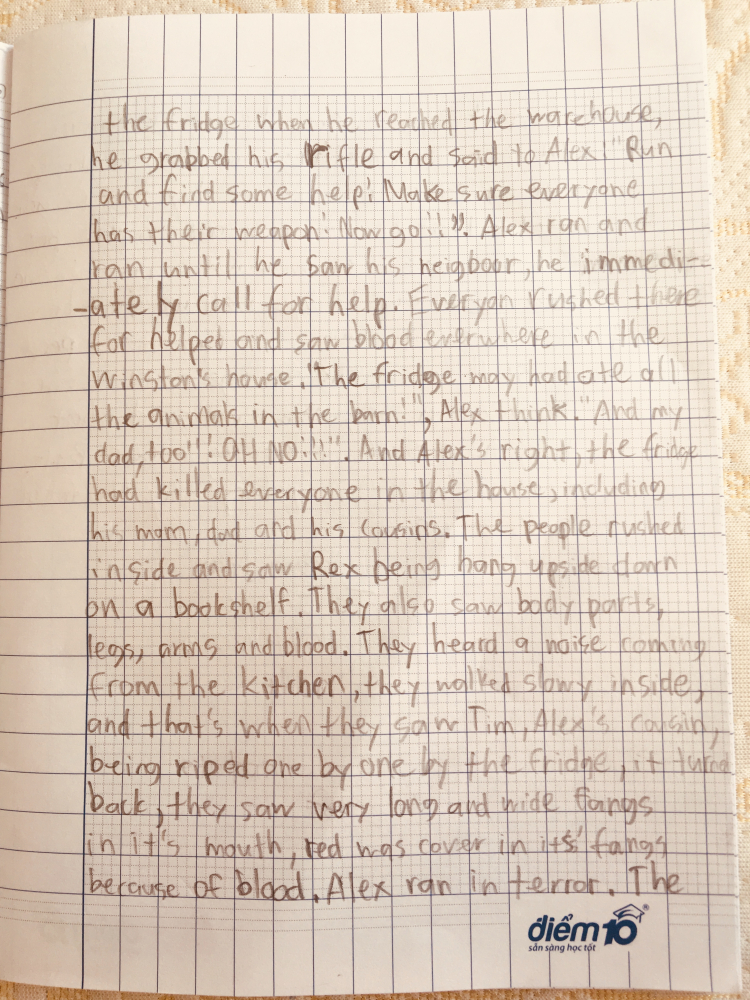 the fridge when he reached the warehouse,
he grabbed his rifle and said to Alex! "Run
and find some help! Make sure everyone
has their weapon! Now go!!". Alex ran and
ran until he saw his neigboor, he immedi-
-ately call for help. Everyon rushed there
for helped and saw blood everwhere in the
Winston's house. "The fridge may had ate all
the animals in the barn!", Alex think. "And my
dad, too!! OH NO!!!". And Alex's right, the fridge
had killed everyone in the house, including
his mom, dad and his cousins. The people rushed
inside and saw Rex being hang upside down
on a bookshelf. They also saw body parts,
legs, arms and blood. They heard a noise coming
from the kitchen, they walked slowy inside,
and that's when they saw Tim, Alex's cousin,
being riped one by one by the fridge, it turnd
back, they saw very long and wide fangs
in it's mouth, red was cover in its' fangs
because of blood. Alex ran in terror. The
điểm10®
sẵn sàng học tốt